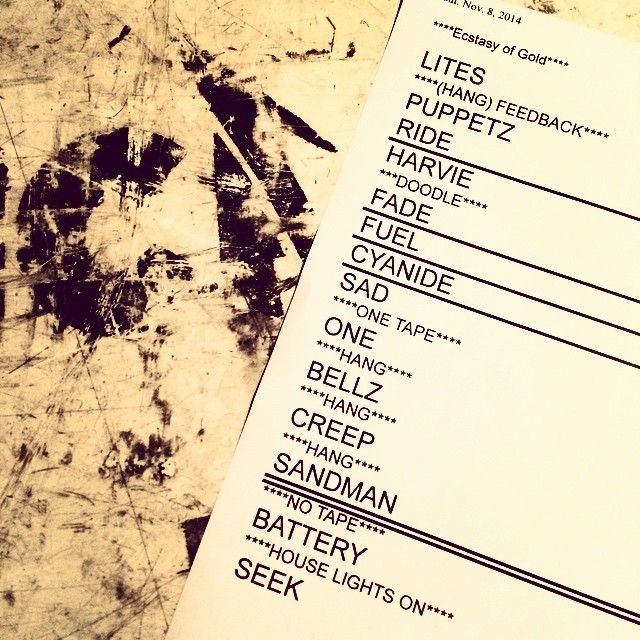 Sat. Nov. 8, 2014
****Ecstasy of Gold****
LITES
****(HANG) FEEDBACK****
PUPPETZ
RIDE
HARVIE
***DOODLE****
FADE
FUEL
CYANIDE
SAD
****ONE TAPE****
ONE
****HANG****
BELLZ
****HANG****
CREEP
****HANG****
SANDMAN
****NO TAPE****
BATTERY
****HOUSE LIGHTS ON****
SEEK